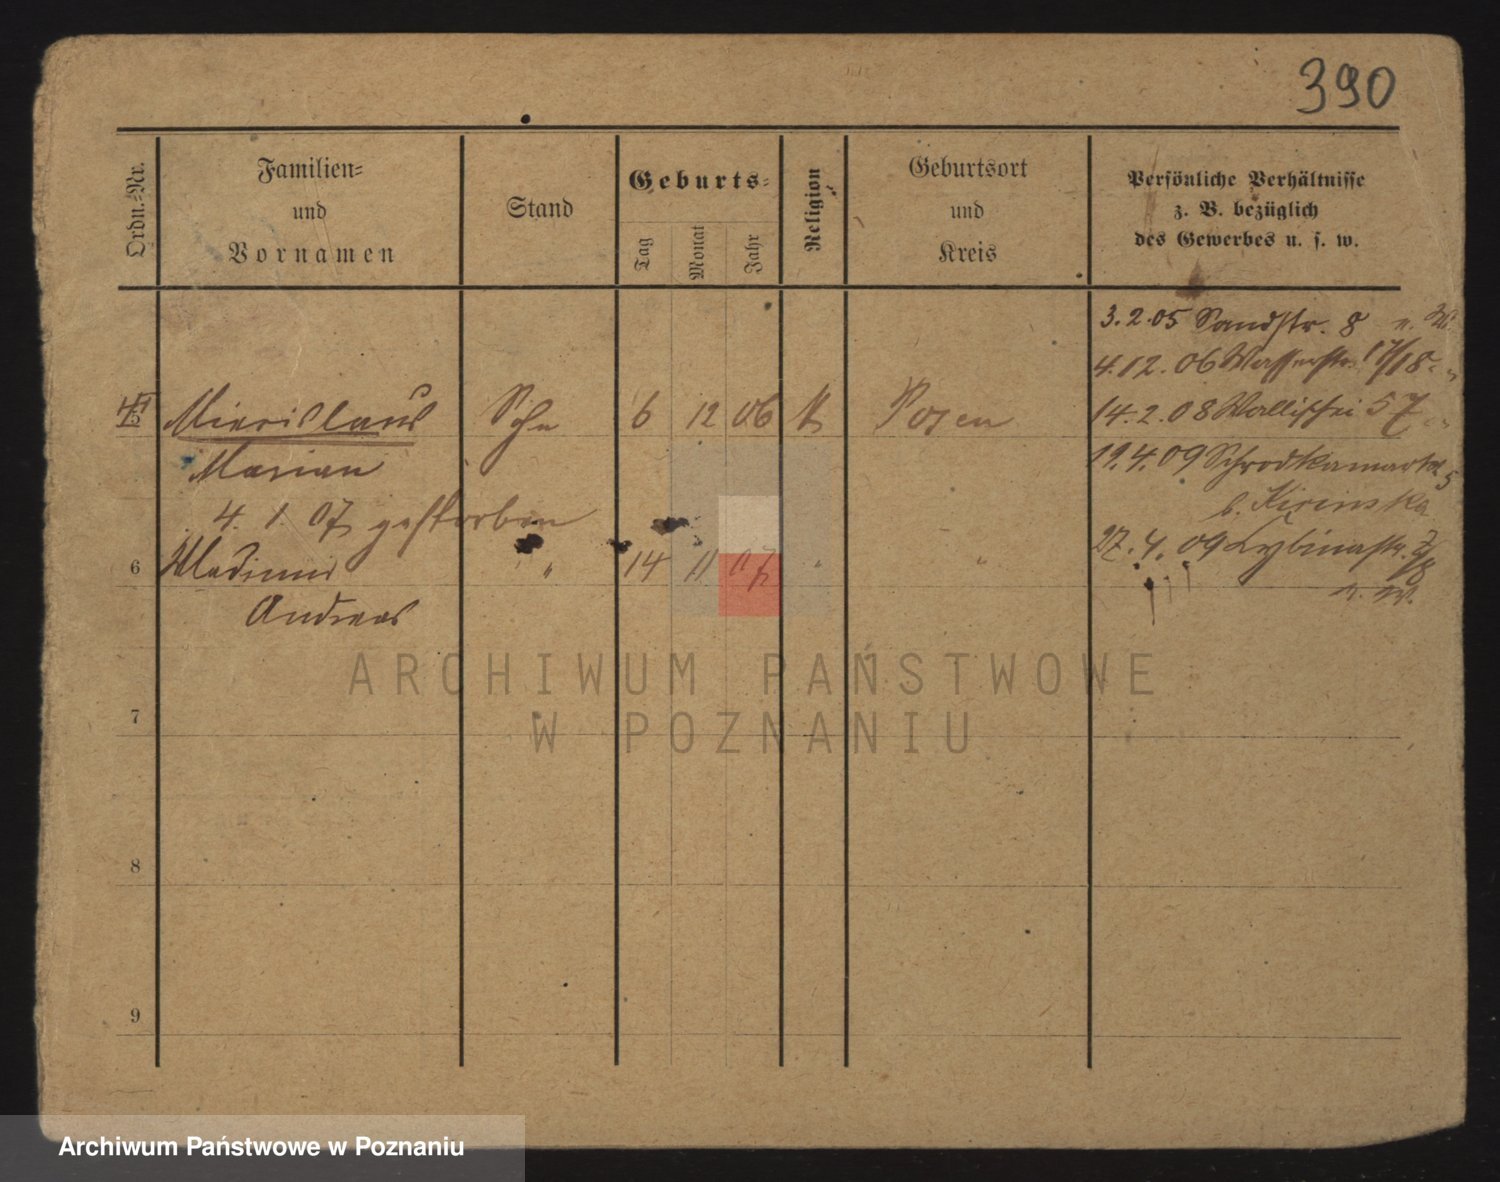 390
Ordn.-Nr.
Familien-
und
Vornamen
Stand
Geburts-
Tag
Monat
Jahr
Religion
Geburtsort
und
Kreis
Persönliche Verhältnisse
z. B. bezüglich
des Gewerbes u. s. w.
3.2.05 Sandstr. 8
4.12.06 Wasserstr. 17/18
14.2.08 Wallischei 57
19.4.09 Schrodkamarkt 5
b. Kirinska
27.4.09 Cybinastr. 7/8
5 Miecislaus Sohn 6 12 06 K Posen
Marian
4. 1. 07 gestorben
6 Wladimir " 14 11 07 " "
Andreas
7
8
9
ARCHIWUM PAŃSTWOWE
W POZNANIU
Archiwum Państwowe w Poznaniu